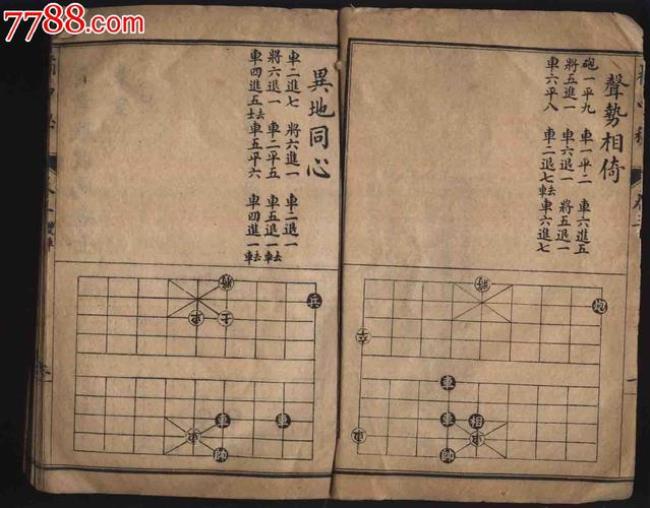 7788.com
聲勢相倚
砲一平九 車一平二 車六進五
將五進一 車六退一 將五退一
車六平八 車二退七去車 車六進七
將
炮
車
車 相
帥
異地同心
車二進七 將六進一 車二退一
將六退一 車二平五 車五退一去車
車四進五去士 車五平六 車四進一去車
將
兵
士
車 車
帥